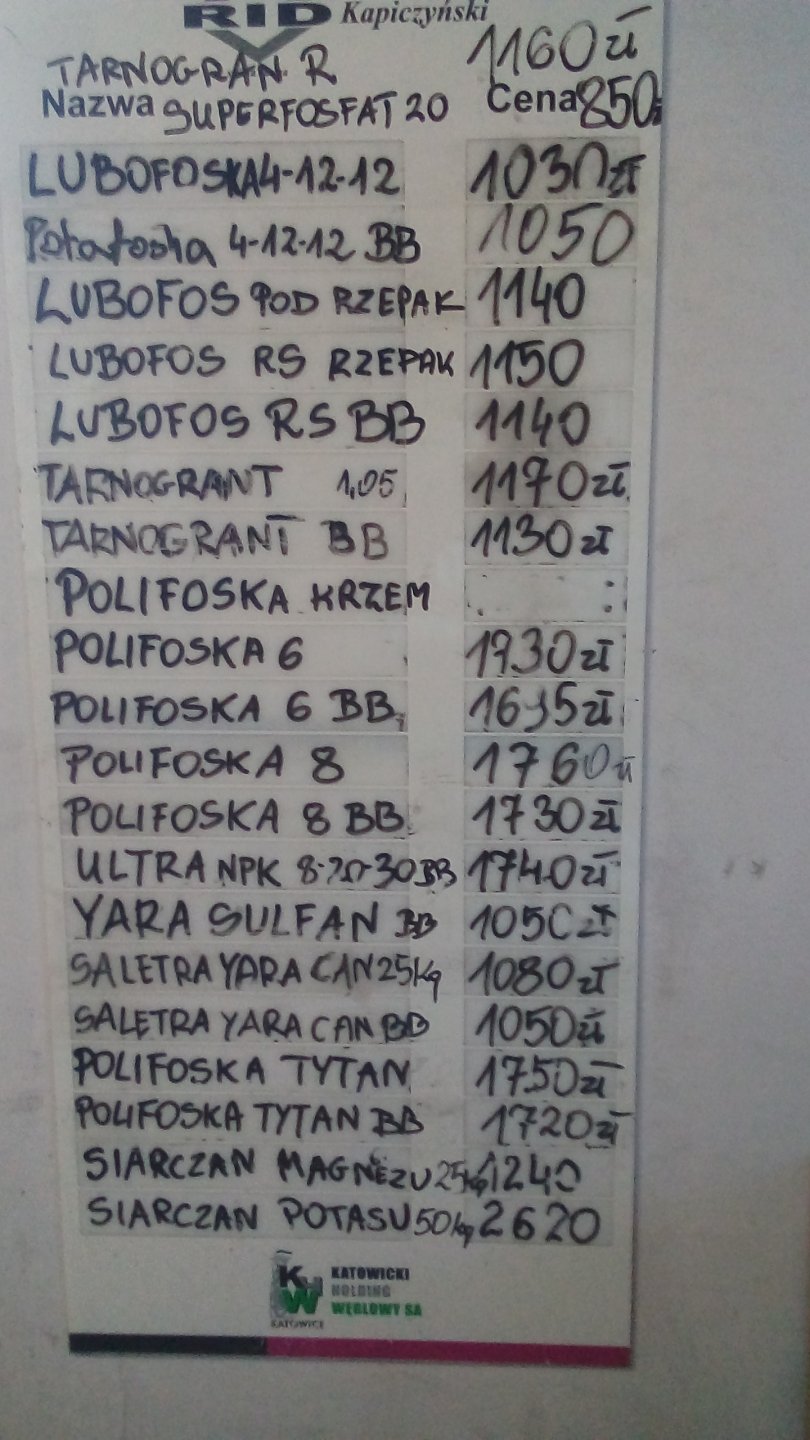 RID Kapiczyński
TARNOGRAN R 1160 zł
Nazwa SUPERFOSFAT 20 Cena 850
LUBOFOSKA 4-12-12 1030 zł
Potafoska 4-12-12 BB 1050
LUBOFOS POD RZEPAK 1140
LUBOFOS RS RZEPAK 1150
LUBOFOS RS BB 1140
TARNOGRANT 1,05 1170 zł
TARNOGRANT BB 1130 zł
POLIFOSKA KRZEM
POLIFOSKA 6 1730 zł
POLIFOSKA 6 BB
POLIFOSKA 8 1760 zł
POLIFOSKA 8 BB 1730 zł
ULTRA NPK 8-20-30 BB 1740 zł
YARA SULFAN BB 1050 zł
SALETRA YARA CAN 25kg 1080 zł
SALETRA YARA CAN BB 1050 zł
POLIFOSKA TYTAN 1750 zł
POLIFOSKA TYTAN BB 1720 zł
SIARCZAN MAGNEZU 25kg 1240
SIARCZAN POTASU 50kg 2620
KHW KATOWICKI
HOLDING
WĘGLOWY SA
KATOWICE